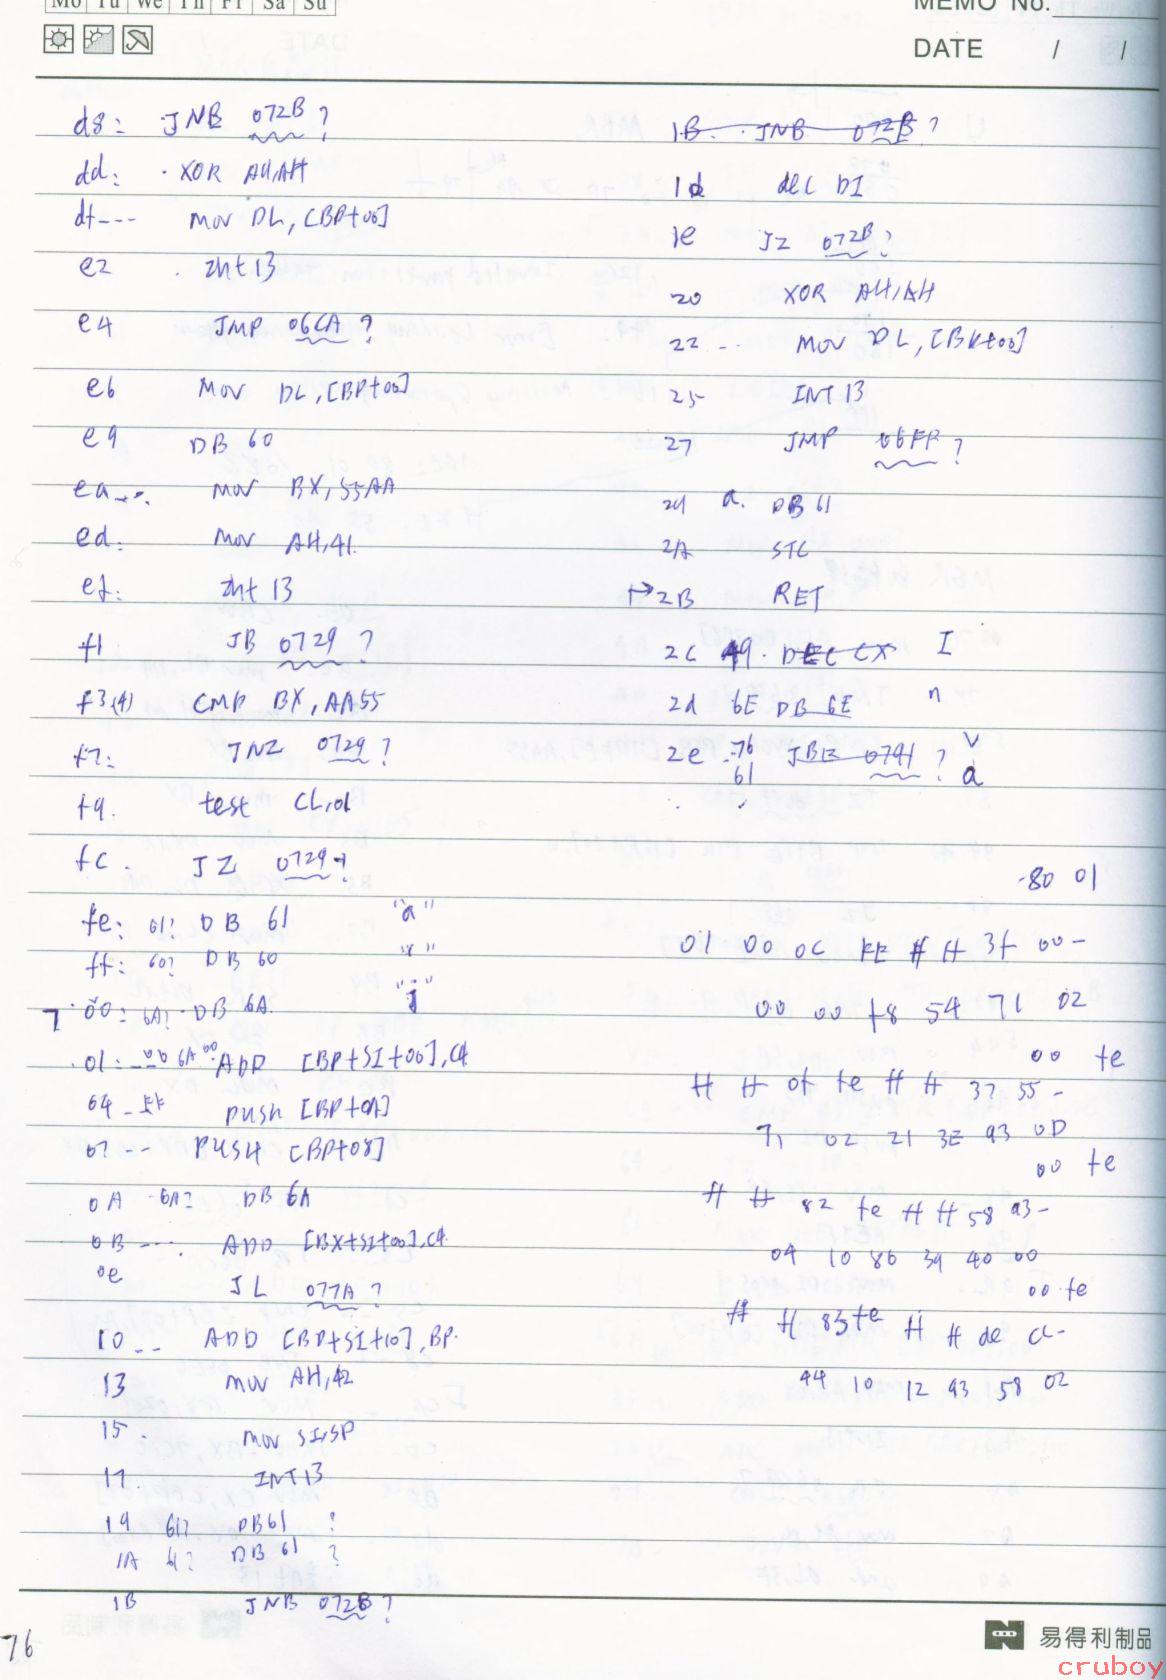 Mo Tu We Th Fr Sa Su
MEMO No.
DATE / /
d8: JNB 072B ?
dd: XOR AH,AH
df--- MOV DL,[BP+00]
e2 Int 13
e4 JMP 06CA ?
e6 MOV DL,[BP+00]
e9 DB 60
ea MOV BX,55AA
ed: MOV AH,41
ef: Int 13
f1 JB 0729 ?
f3(4) CMP BX,AA55
f7: JNZ 0729 ?
f9. test CL,01
fc. JZ 0729 ?
fe: 61? DB 61 "a"
ff: 60? DB 60
7 00: 6A? DB 6A "j"
01: 00 6A 00 ADD [BP+SI+00],
04 push [BP+0A]
07 -- PUSH [BP+08]
0A 6A? DB 6A
0B --- ADD [BX+SI+00],
0e JL 077A ?
10 -- ADD [BP+SI+10],BP
13 MOV AH,42
15. MOV SI,SP
17. INT 13
19 61? DB 61 ?
1A 61? DB 61 ?
1B JNB 072B ?
76
1B. JNB 072B ?
1d dec DI
1e JZ 072B ?
20 XOR AH,AH
22 -- MOV DL,[BP+00]
25 INT 13
27 JMP 06FF ?
29 a. DB 61
2A STC
2B RET
2C 49. DEC CX I
2d 6E DB 6E n
2e 76 JBE 0791 ? v
61 a
80 01
01 00 0C FE ff ff 3f 00-
00 00 f8 54 71 02
00 fe
ff ff 0f fe ff ff 37 55-
71 02 21 3E 93 0D
00 fe
ff ff 82 fe ff ff 58 93-
04 10 86 39 40 00
00 fe
ff ff 83 fe ff ff de
44 10 12 93 58 02
易得利制品
cruboy